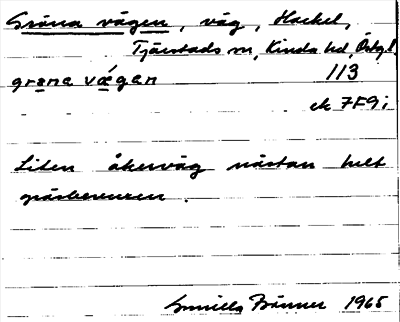 Gröna vägen, väg, Hackel,
Tjärstads sn, Kinda hd, Östgl.
grøna vǽgen 113
ek 7F9i
Liten åkerväg nästan helt
gräsbevuxen.
Gunilla Bånner 1965